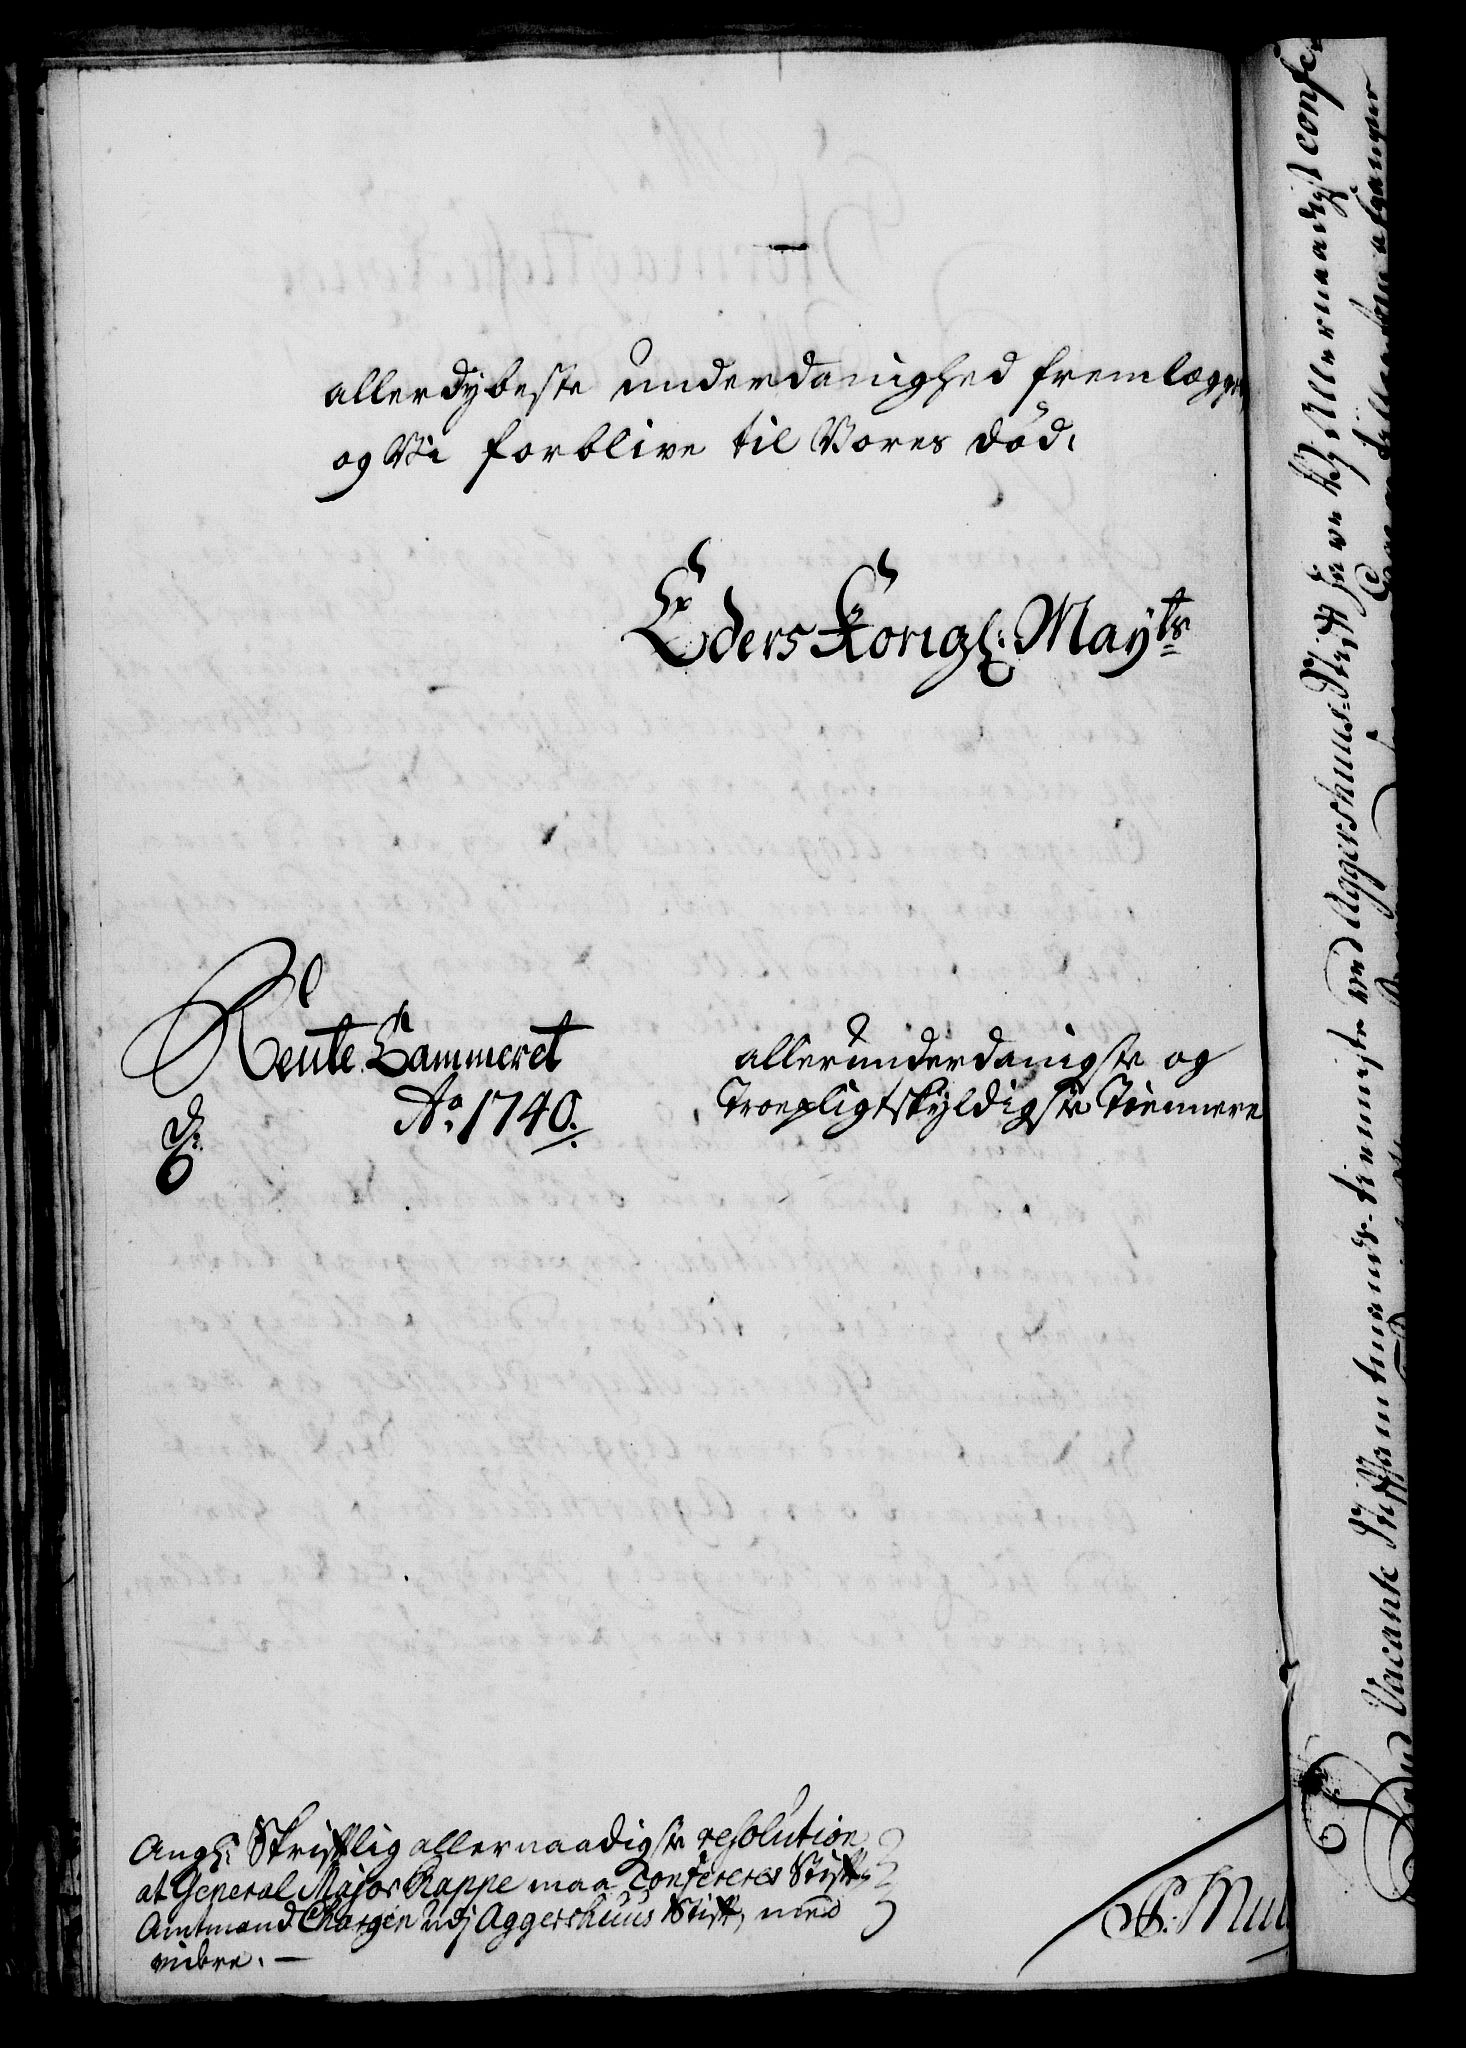 allerdybeste underdanighed fremlægges,
og Vi forblive til Vores död.
Eders Kongl: Mayts
Rente Cammeret
Ao. 1740.
allerunderdanigste og
Troepligtskyldigste Tiennere
Angl: Skriftlig allernaadigste resolution
at General Major Rappe maa Confereres Stift
Amtmand Chargen udj Aggershuus Stift, med
videre. —
Mul
Vacante Stiftamtmands-tienneste ved Aggershuus-Stift have Vj Allernaadigst confe